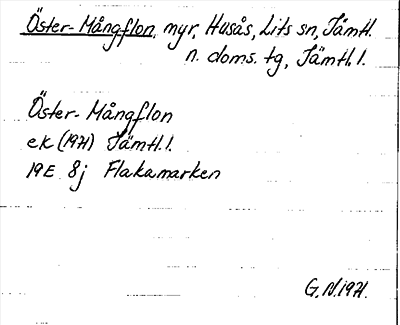 Öster-Mångflon, myr, Husås, Lits sn, Jämtl.
n. doms. tg, Jämtl. l.
Öster-Mångflon
ek (1971) Jämtl. l.
19E 8j Flakamarken
G.N. 1971.